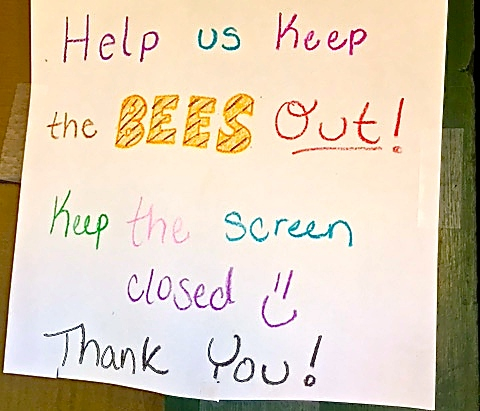 Help us Keep
the BEES Out!
Keep the screen
closed
Thank You!